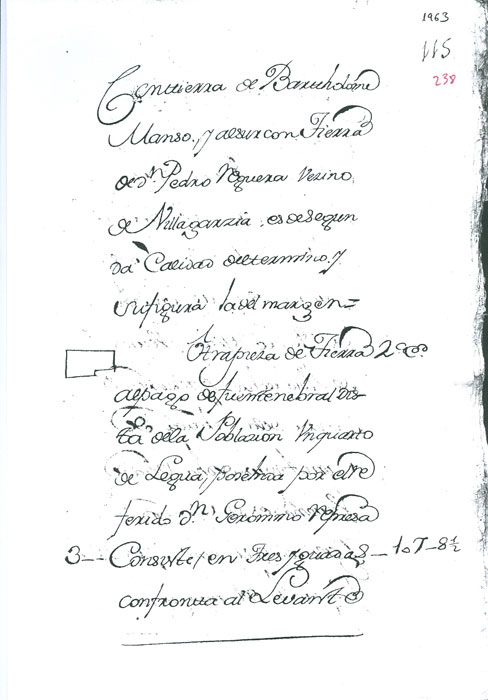 1963
115
238
Con tierra de Bartholome
Manso, y al sur con Tierra
de Dn. Pedro Noguera Vezino
de Villagarzia, es de segun
da Calidad del termino, y
su figura la del margen=
Otra pieza de Tierra
al pago de fuentenebral dis
ta de la Poblazion Un quarto
de Legua, poseida por el Re
ferido Dn. Geronimo
3-- Consiste en tres yguadas -- 1o T- 8½
confronta al Levante